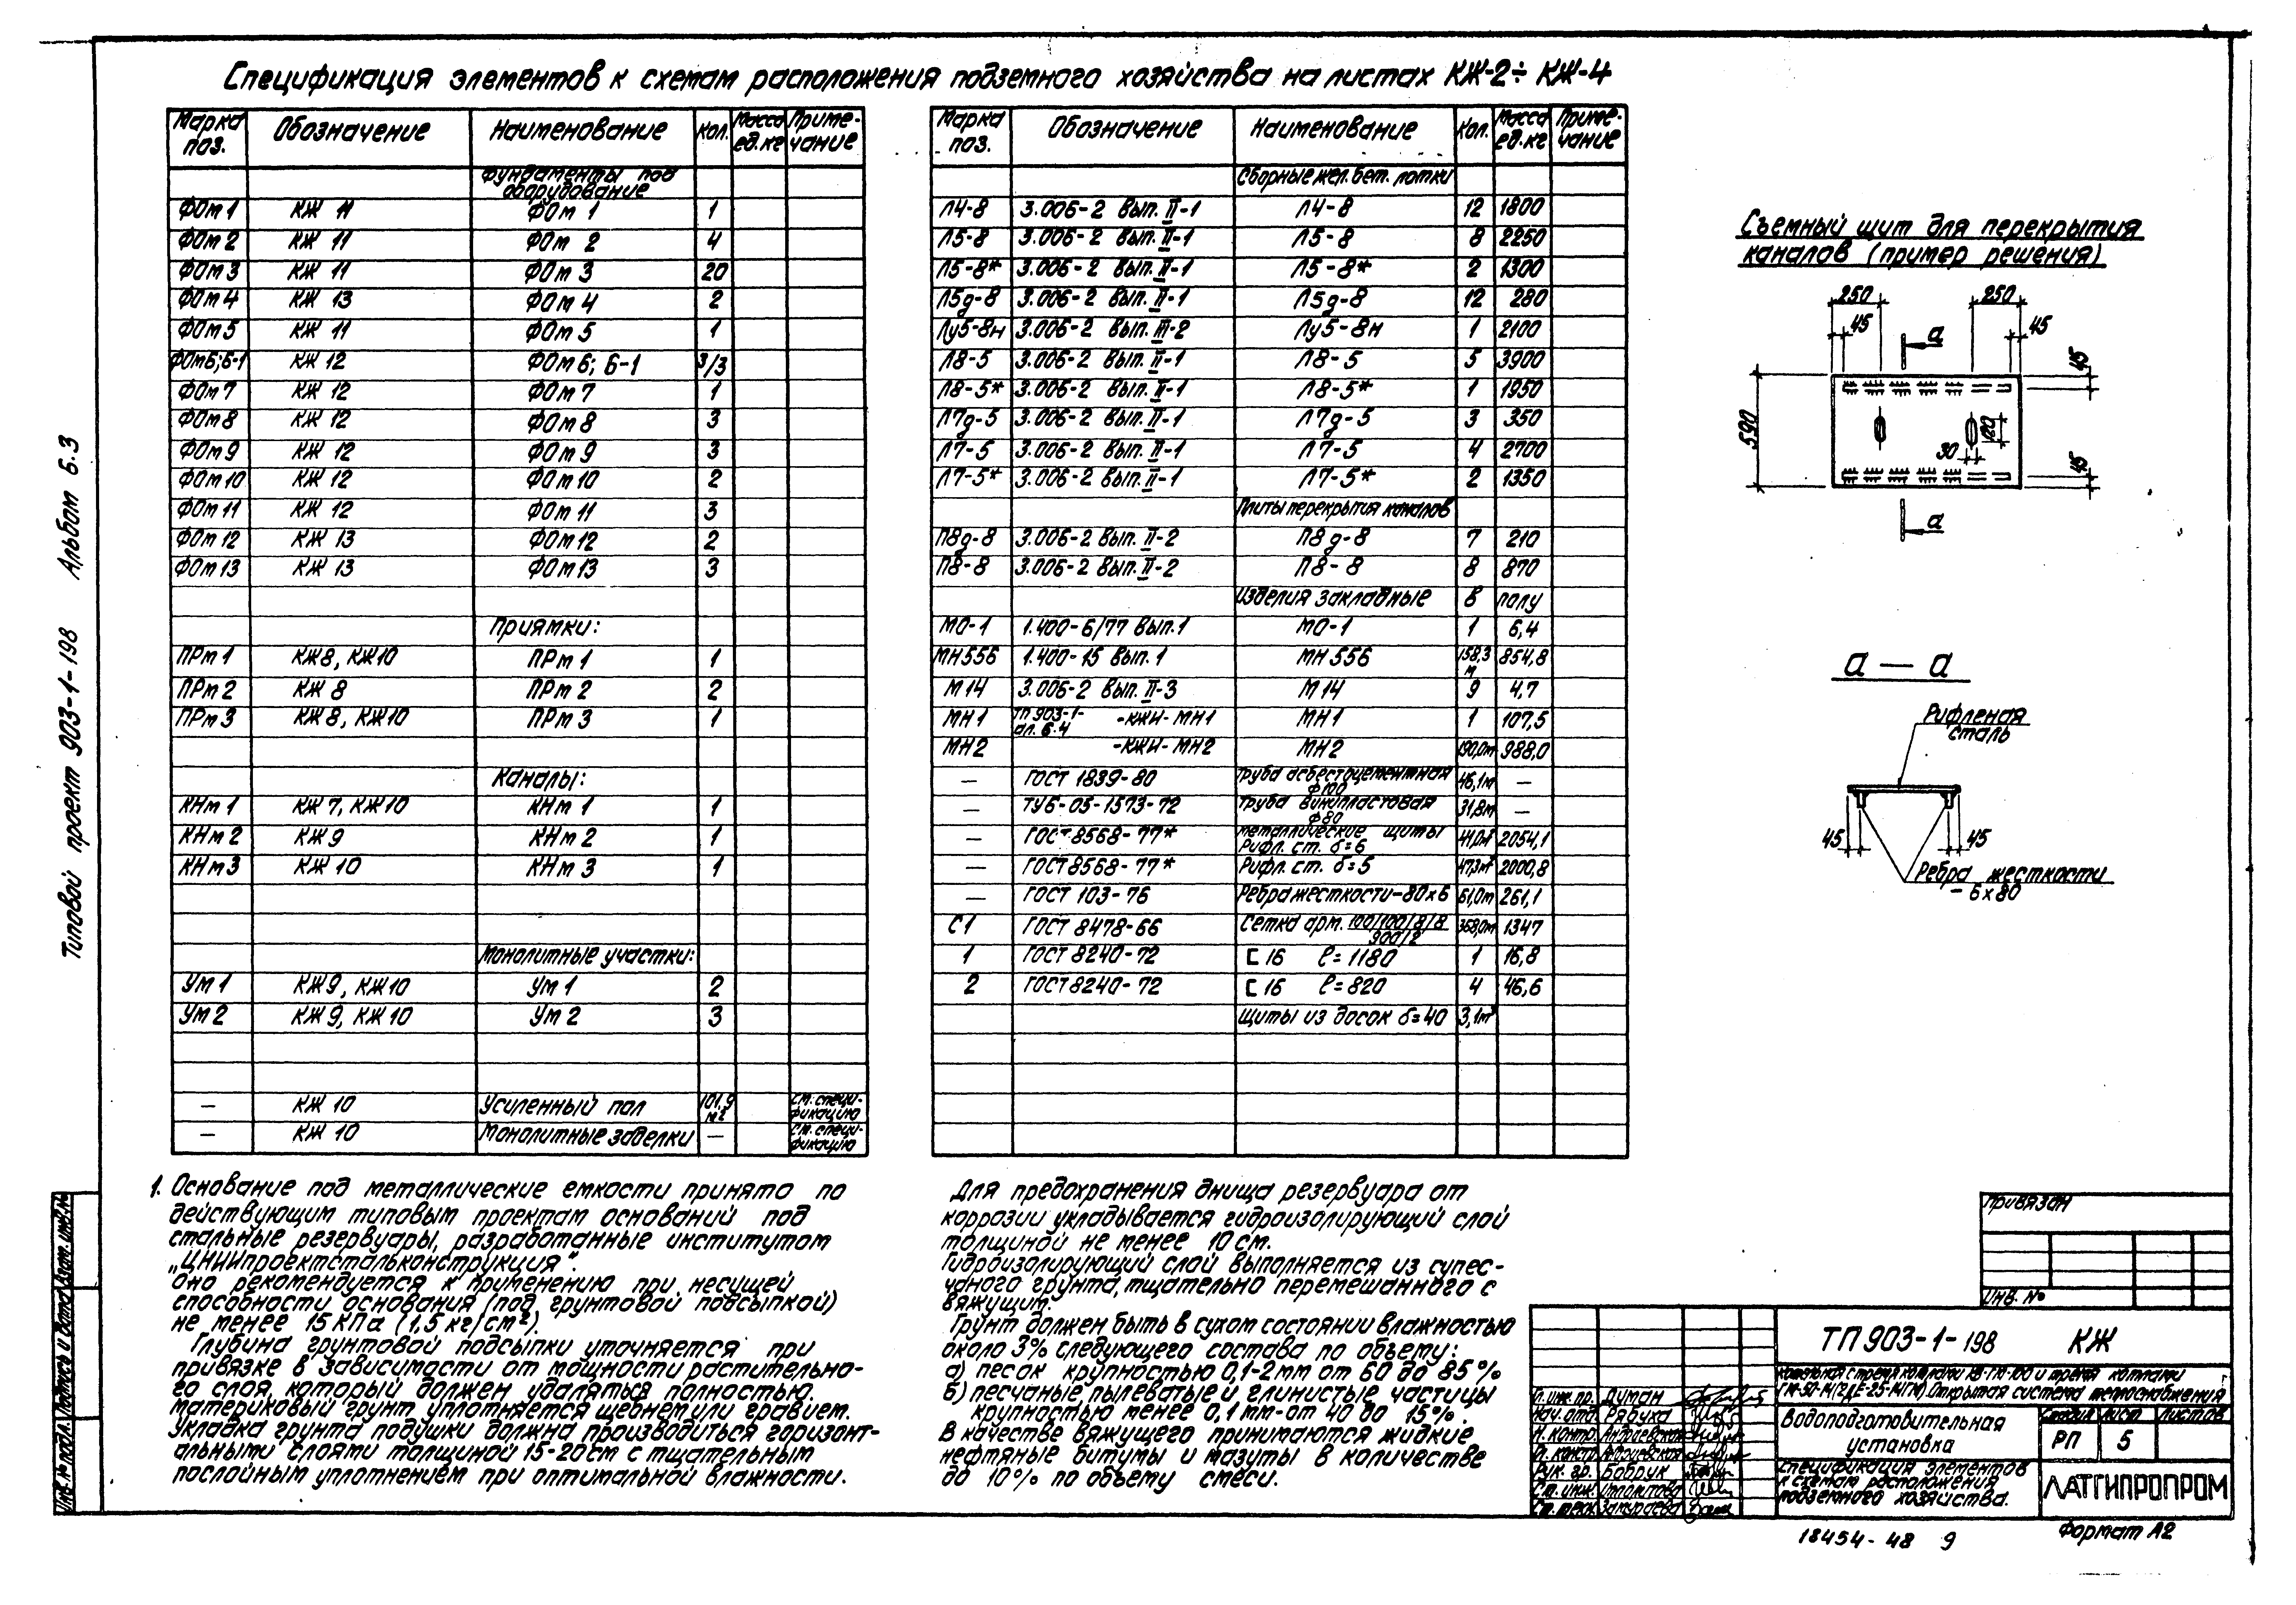 Спецификация элементов к схемам расположения подземного хозяйства на листах КЖ-2÷ КЖ-4
Марка поз. Обозначение Наименование Кол. Масса ед.кг Примечание
Фундаменты под оборудование
ФОм 1 КЖ 11 ФОм 1 1
ФОм 2 КЖ 11 ФОм 2 4
ФОм 3 КЖ 11 ФОм 3 20
ФОм 4 КЖ 13 ФОм 4 2
ФОм 5 КЖ 11 ФОм 5 1
ФОм6;Б-1 КЖ 12 ФОм 6; Б-1 3/3
ФОм 7 КЖ 12 ФОм 7 1
ФОм 8 КЖ 12 ФОм 8 3
ФОм 9 КЖ 12 ФОм 9 3
ФОм 10 КЖ 12 ФОм 10 2
ФОм 11 КЖ 12 ФОм 11 3
ФОм 12 КЖ 13 ФОм 12 2
ФОм 13 КЖ 13 ФОм 13 3
Приямки:
ПРм 1 КЖ8, КЖ10 ПРм 1 1
ПРм 2 КЖ 8 ПРм 2 2
ПРм 3 КЖ 8, КЖ10 ПРм 3 1
Каналы:
КНм 1 КЖ 7, КЖ10 КНм 1 1
КНм 2 КЖ 9 КНм 2 1
КНм 3 КЖ 10 КНм 3 1
Монолитные участки:
Ум 1 КЖ9, КЖ10 Ум 1 2
Ум 2 КЖ 9, КЖ 10 Ум 2 3
— КЖ 10 Усиленный пол 101,9 м² См. спецификацию
— КЖ 10 Монолитные заделки — См. спецификацию
Марка поз. Обозначение Наименование Кол. Масса ед.кг Примечание
Сборные жел. бет. лотки
Л4-8 3.006-2 Вып. II-1 Л4-8 12 1800
Л5-8 3.006-2 Вып. II-1 Л5-8 8 2250
Л5-8* 3.006-2 Вып. II-1 Л5-8* 2 1300
Л5д-8 3.006-2 Вып. II-1 Л5д-8 12 280
Лу5-8н 3.006-2 Вып. III-2 Лу5-8н 1 2100
Л8-5 3.006-2 Вып. II-1 Л8-5 5 3900
Л8-5* 3.006-2 Вып. II-1 Л8-5* 1 1950
Л7д-5 3.006-2 Вып. II-1 Л7д-5 3 350
Л7-5 3.006-2 Вып. II-1 Л7-5 4 2700
Л7-5* 3.006-2 Вып. II-1 Л7-5* 2 1350
Плиты перекрытия каналов
П8д-8 3.006-2 Вып. II-2 П8д-8 7 210
П8-8 3.006-2 Вып. II-2 П8-8 8 870
Изделия закладные в полу
МО-1 1.400-6/77 Вып.1 МО-1 1 6,4
МН556 1.400-15 Вып. 1 МН 556 158,3 м 854,8
М 14 3.006-2 Вып. II-3 М 14 9 4,7
МН1 ТП 903-1- ал. 6.4 -КЖИ-МН1 МН1 1 107,5
МН2 -КЖИ-МН2 МН2 190,0м 988,0
— ГОСТ 1839-80 Труба асбестоцементная ф100 46,1м —
— ТУ6-05-1573-72 Труба винипластовая ф80 31,8м —
— ГОСТ 8568-77* Металлические щиты Рифл. ст. б=6 41,0м² 2054,1
— ГОСТ 8568-77* Рифл. ст. б=5 47,3м² 2000,8
— ГОСТ 103-76 Ребра жесткости-80x6 61,0м 261,1
С1 ГОСТ 8478-66 Сетка арм. 100/100/8/8 900/2 368,0м 1347
1 ГОСТ 8240-72 [ 16 ℓ=1180 1 16,8
2 ГОСТ 8240-72 [ 16 ℓ=820 4 46,6
Щиты из досок б=40 3,1м³
Съемный щит для перекрытия
каналов (пример решения)
250 250
45 45
а
45
590
30
120
45
а
а — а
Рифленая
сталь
45 45
Ребра жесткости
- 6x80
1. Основание под металлические емкости принято по
действующим типовым проектам оснований под
стальные резервуары, разработанные институтом
„ЦНИИпроектстальконструкция".
Оно рекомендуется к применению при несущей
способности основания (под грунтовой подсыпкой)
не менее 15 КПа (1,5 кг/см²).
Глубина грунтовой подсыпки уточняется при
привязке в зависимости от мощности растительно-
го слоя, который должен удаляться полностью.
Материковый грунт уплотняется щебнем или гравием.
Укладка грунта подушки должна производиться горизонт-
альными слоями толщиной 15-20см с тщательным
послойным уплотнением при оптимальной влажности.
Для предохранения днища резервуара от
коррозии укладывается гидроизолирующий слой
толщиной не менее 10 см.
Гидроизолирующий слой выполняется из супес-
чаного грунта, тщательно перемешанного с
вяжущим.
Грунт должен быть в сухом состоянии влажностью
около 3% следующего состава по объему:
а) песок крупностью 0,1-2мм от 60 до 85%
б) песчаные пылеватые и глинистые частицы
крупностью менее 0,1мм-от 40 до 15%.
В качестве вяжущего принимаются жидкие
нефтяные битумы и мазуты в количестве
до 10% по объему смеси.
Типовой проект 903-1-198 Альбом 6.3
Взам. инв.№
Подпись и дата
Инв.№ подл.
Привязан
Инв. №
ТП 903-1-198 КЖ
Открытая система теплоснабжения
Водоподготовительная
установка
Стадия Лист Листов
РП 5
Спецификация элементов
к схемам расположения
подземного хозяйства.
ЛАТГИПРОПРОМ
Гл. инж. пр. Думан
Нач. отд. Рябуха
Н. контр. Андриевская
Рук. гр. Бобрук
Ст. инж.
Ст. техн.
18454-48 9
Формат А2